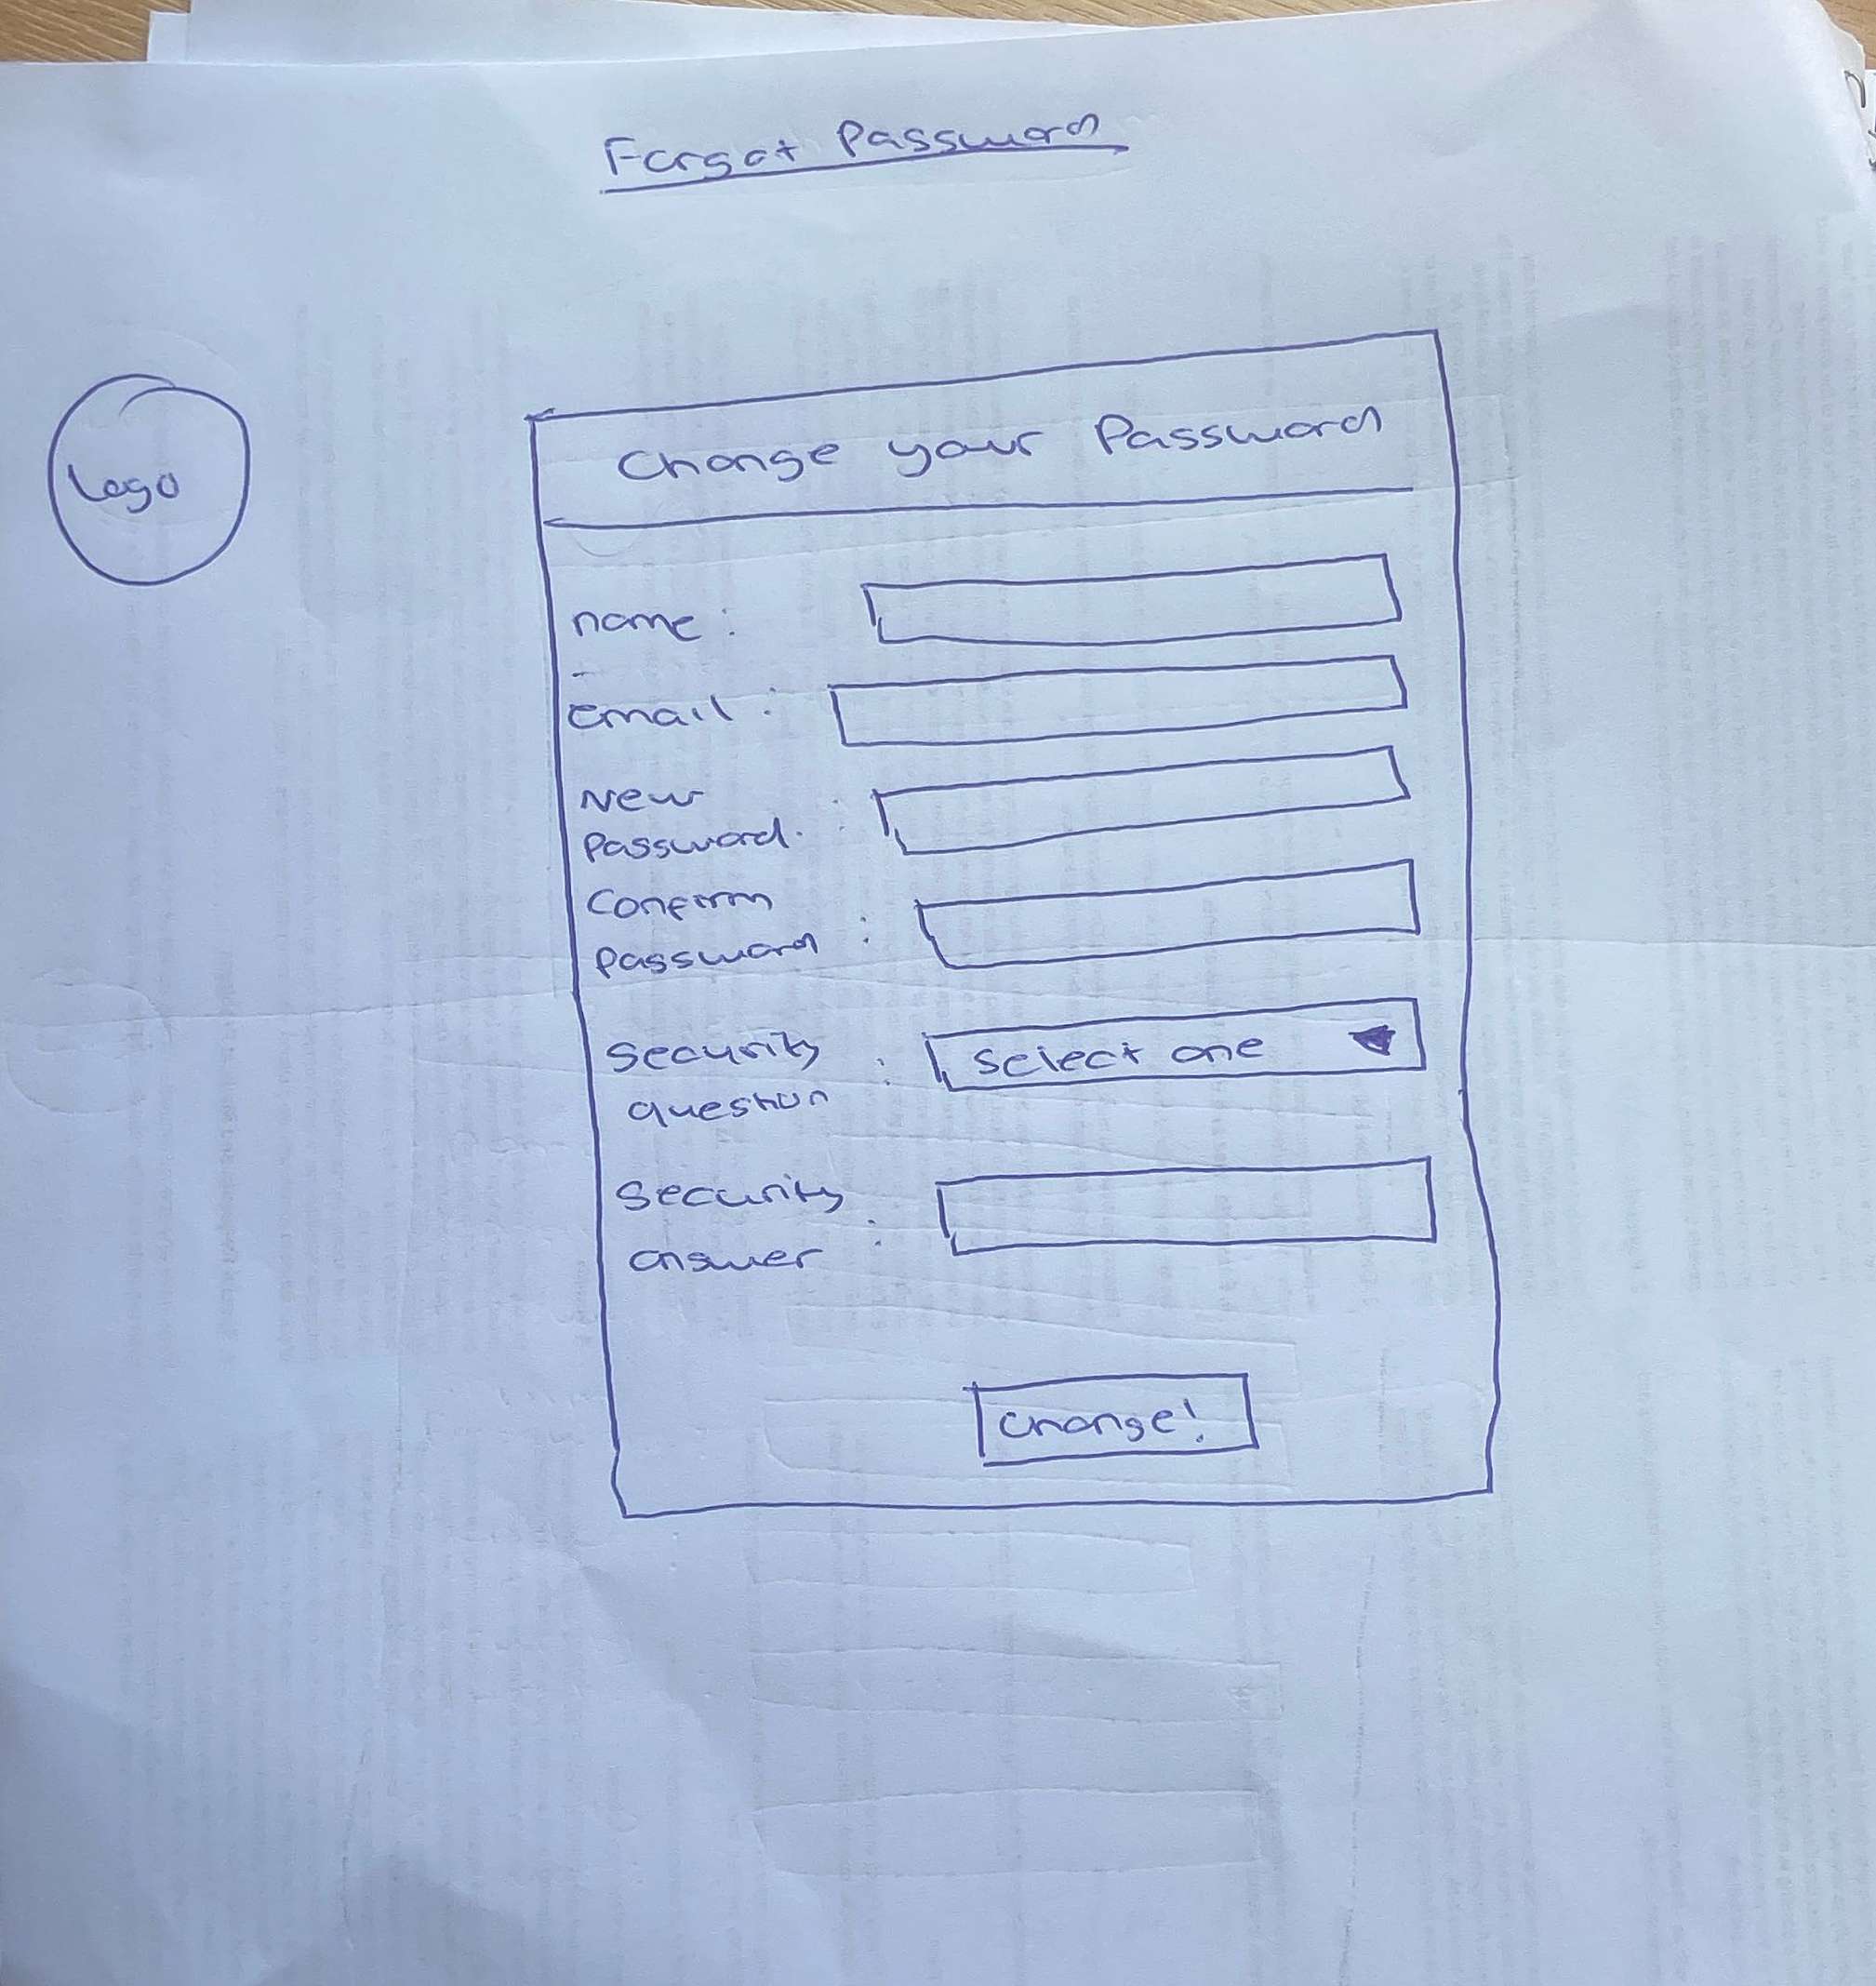 Forgot Password
Logo
Change your Password
name :
email :
New
Password :
Confirm
Password :
Security
question :
Select one
Security
answer :
Change!